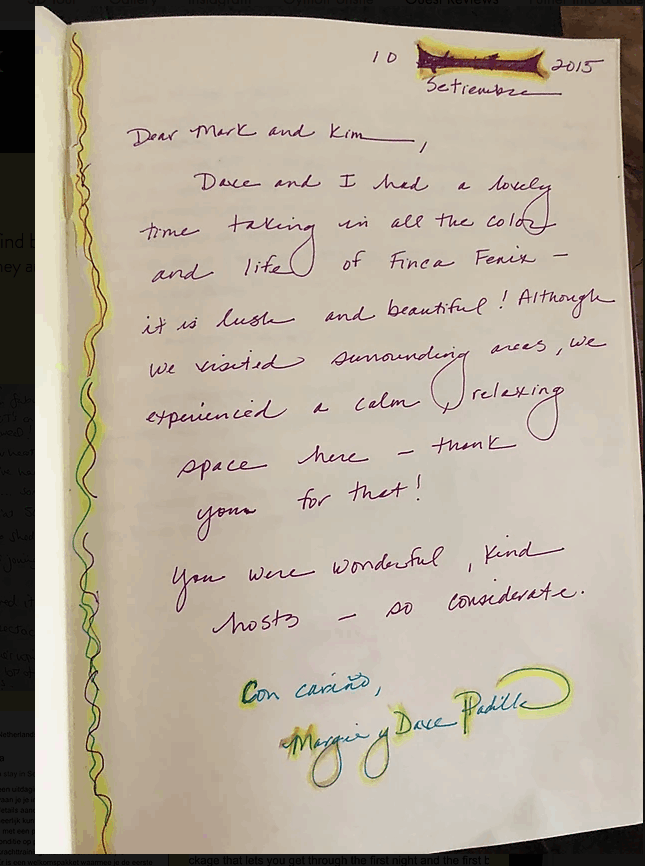 10 2015
Setiembre
Dear Mark and Kim,
Dave and I had a lovely
time taking in all the color
and life of Finca Fenix –
it is lush and beautiful! Although
we visited surrounding areas, we
experienced a calm, relaxing
space here – thank
you for that!
You were wonderful, kind
hosts – so considerate.
Con cariño,
Margie y Dave Padilla
ckage that lets you get through the first night and the first